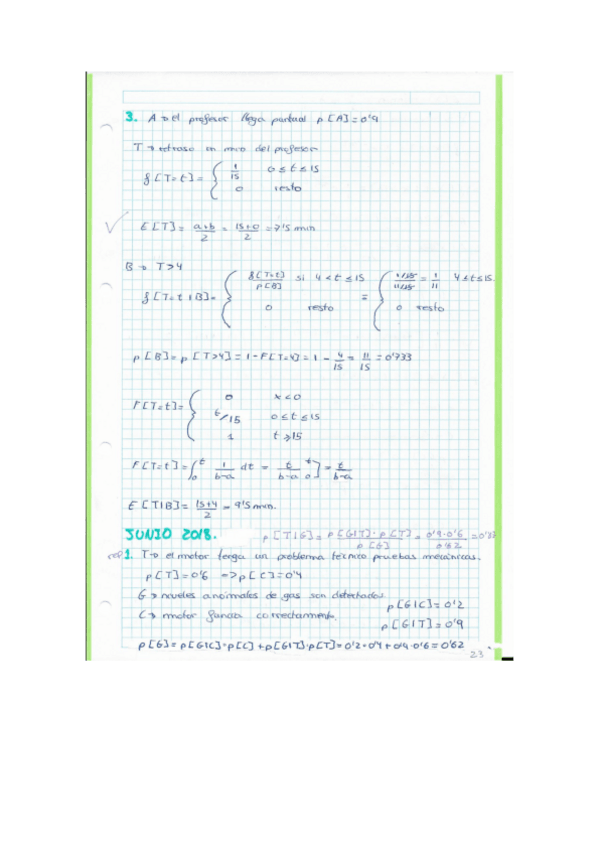 3. A → el profesor llega puntual p[A]=0'9
T → retraso en min del profesor
f[T=t] = { 1/15 0≤t≤15
0 resto
E[T] = a+b/2 = 15+0/2 = 7'5 min
B → T>4
f[T=t|B] = { f[T=t]/p[B] si 4<t≤15 = { 1/15/11/15 = 1/11 4≤t≤15.
0 resto 0 resto
p[B] = p[T>4] = 1-F[T=4] = 1 - 4/15 = 11/15 = 0'733
F[T=t] = { 0 x<0
t/15 0≤t≤15
1 t≥15
F[T=t] = ∫₀ᵗ 1/b-a dt = t/b-a ]₀ᵗ = t/b-a
E[T|B] = 15+4/2 = 9'5 min.
JUNIO 2018. p[T|G] = p[G|T]·p[T]/p[G] = 0'9·0'6/0'62 = 0'87
1. T → el motor tenga un problema técnico pruebas mecánicas.
p[T]=0'6 => p[C]=0'4
G → niveles anormales de gas son detectados
p[G|C]=0'2
C → motor funcio correctamente.
p[G|T]=0'9
p[G] = p[G|C]·p[C]+p[G|T]·p[T] = 0'2·0'4+0'9·0'6 = 0'62
23